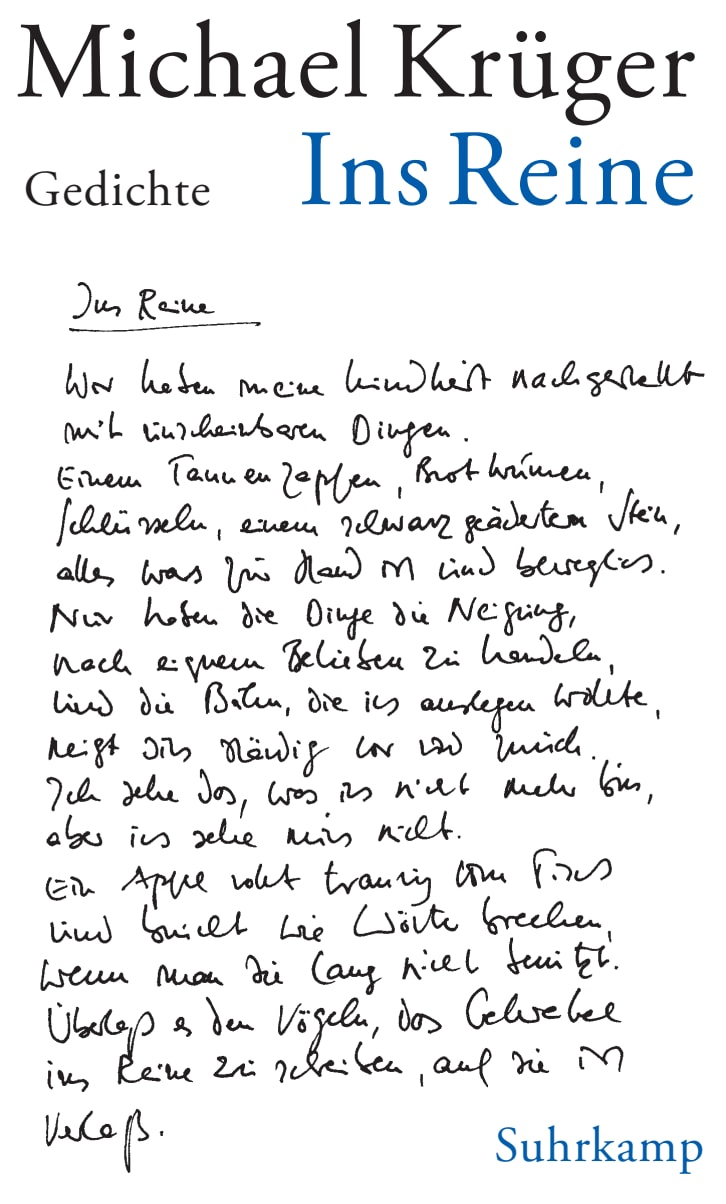 Michael Krüger
Ins Reine
Gedichte
Ins Reine
Wir haben meine Kindheit nachgestellt
mit unscheinbaren Dingen.
Einem Tannenzapfen, Brotkrümen,
Schlüsseln, einem schwarz geäderten Stein,
alles was zur Hand ist und beweglich.
Nur haben die Dinge die Neigung,
nach eignem Belieben zu handeln,
und die Bahn, die ich auslegen wollte,
neigt sich ständig vor und zurück.
Ich sehe das, was ich nicht mehr bin,
aber ich sehe mich nicht.
Ein Apfel rollt traurig vom Tisch
und bricht wie Wörter brechen,
wenn man sie lang nicht benützt.
Überlaß es den Vögeln, das Gekrakel
ins Reine zu schreiben, auf sie ist
Verlaß.
Suhrkamp